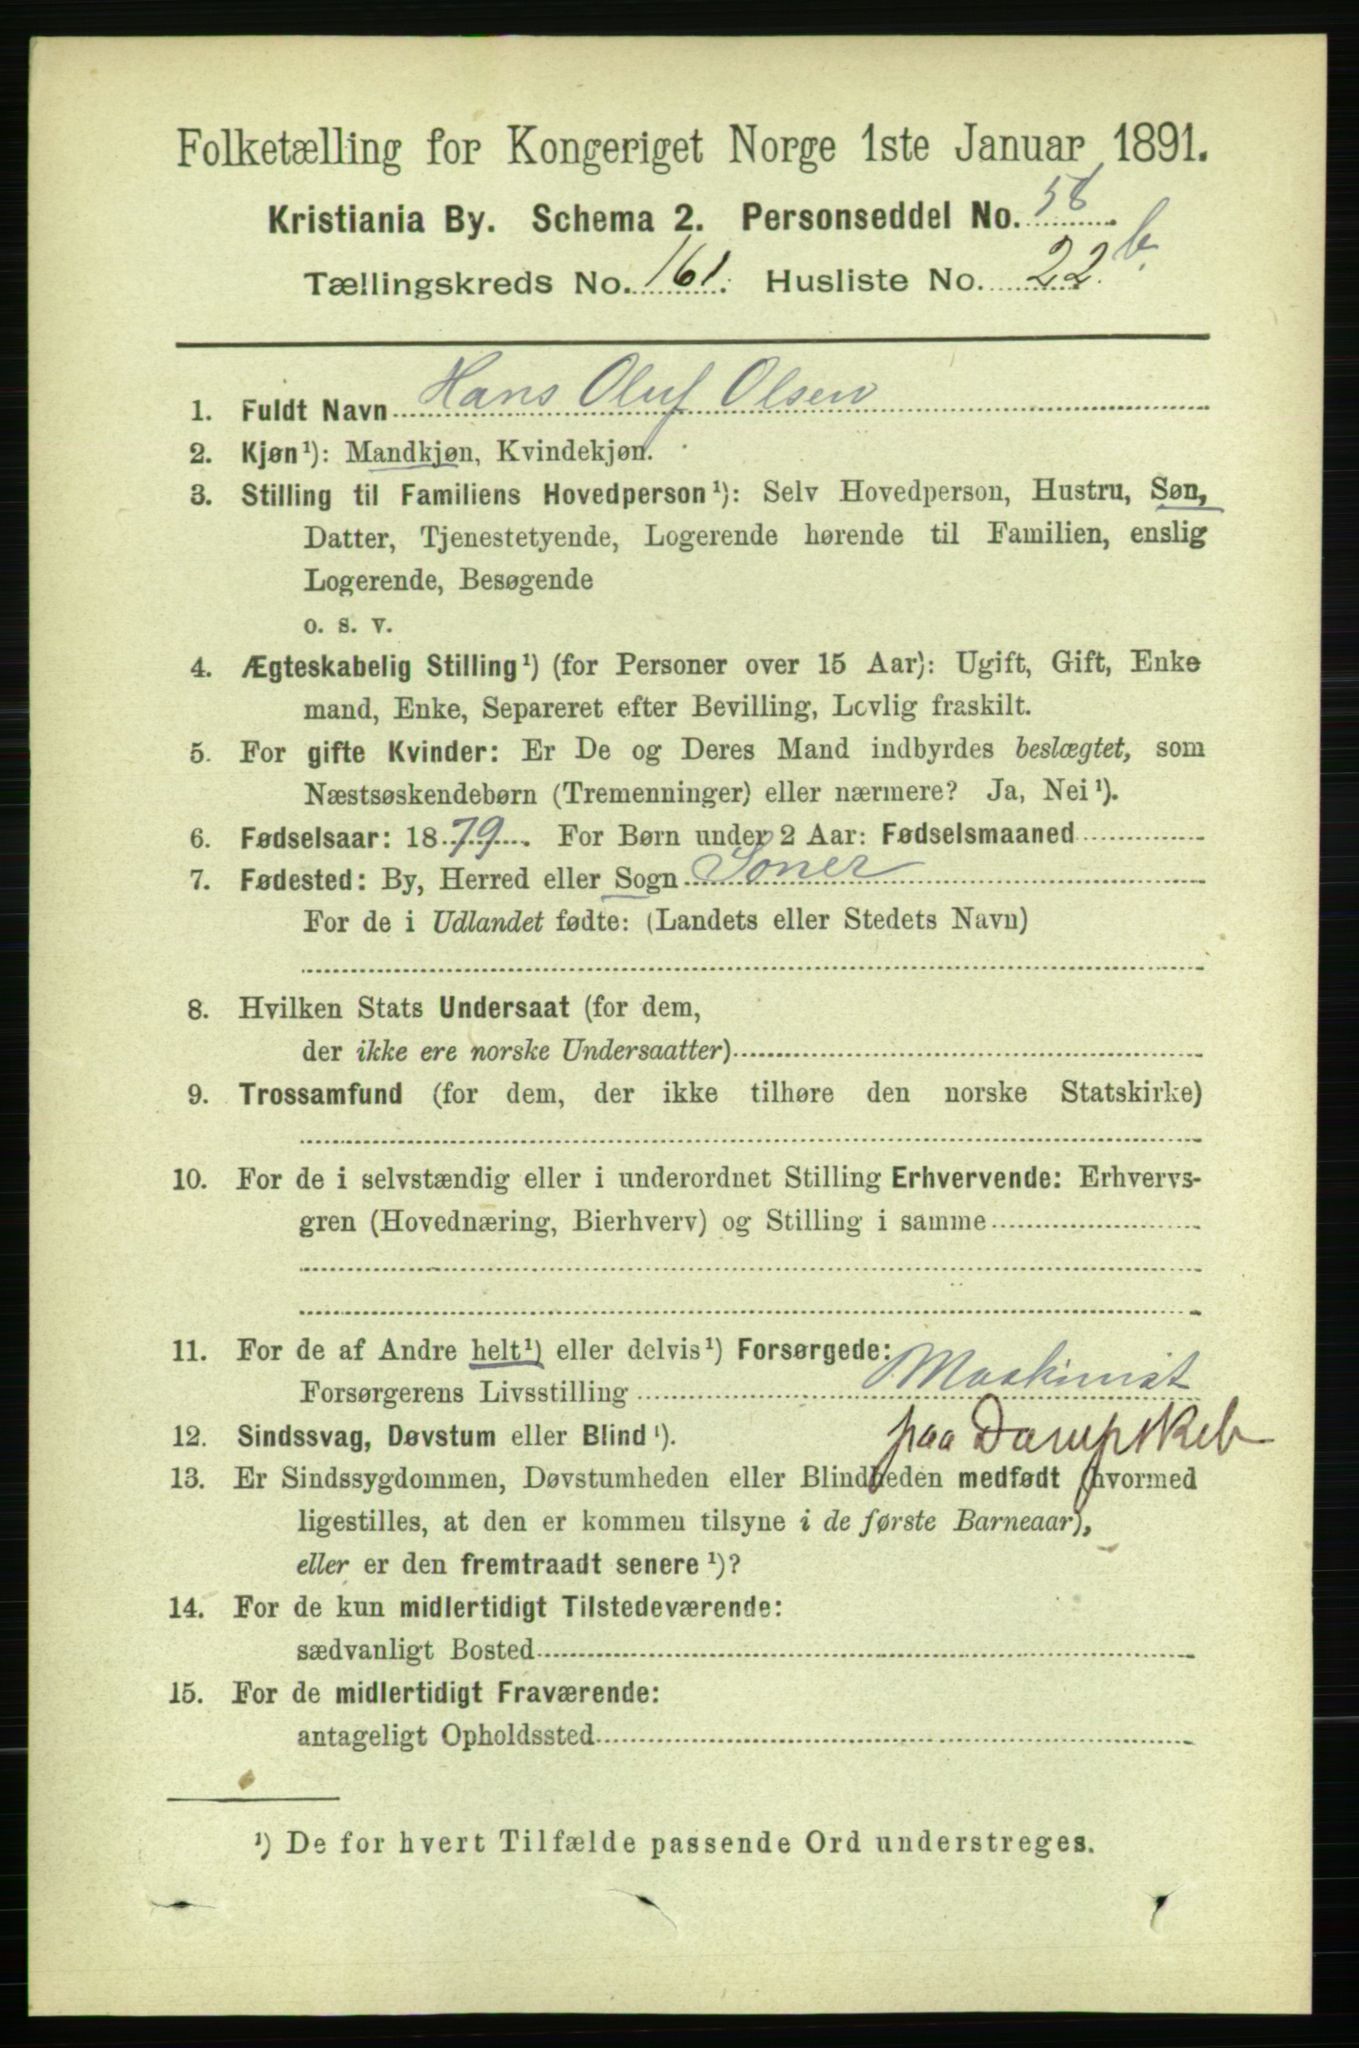 Folketælling for Kongeriget Norge 1ste Januar 1891.
Kristiania By. Schema 2. Personseddel No. 58
Tællingskreds No. 161. Husliste No. 22 b.
1. Fuldt Navn Hans Oluf Olsen
2. Kjøn¹): Mandkjøn, Kvindekjøn.
3. Stilling til Familiens Hovedperson¹): Selv Hovedperson, Hustru, Søn,
Datter, Tjenestetyende, Logerende hørende til Familien, enslig
Logerende, Besøgende
o. s. v.
4. Ægteskabelig Stilling¹) (for Personer over 15 Aar): Ugift, Gift, Enke
mand, Enke, Separeret efter Bevilling, Lovlig fraskilt.
5. For gifte Kvinder: Er De og Deres Mand indbyrdes beslægtet, som
Næstsøskendebørn (Tremenninger) eller nærmere? Ja, Nei¹).
6. Fødselsaar: 1879. For Børn under 2 Aar: Fødselsmaaned
7. Fødested: By, Herred eller Sogn Soner
For de i Udlandet fødte: (Landets eller Stedets Navn)
8. Hvilken Stats Undersaat (for dem,
der ikke ere norske Undersaatter)
9. Trossamfund (for dem, der ikke tilhøre den norske Statskirke)
10. For de i selvstændig eller i underordnet Stilling Erhvervende: Erhvervs-
gren (Hovednæring, Bierhverv) og Stilling i samme
11. For de af Andre helt¹) eller delvis¹) Forsørgede:
Forsørgerens Livsstilling Maskinist
12. Sindssvag, Døvstum eller Blind¹). paa Dampskib
13. Er Sindssygdommen, Døvstumheden eller Blindheden medfødt (hvormed
ligestilles, at den er kommen tilsyne i de første Barneaar),
eller er den fremtraadt senere¹)?
14. For de kun midlertidigt Tilstedeværende:
sædvanligt Bosted
15. For de midlertidigt Fraværende:
antageligt Opholdssted
¹) De for hvert Tilfælde passende Ord understreges.